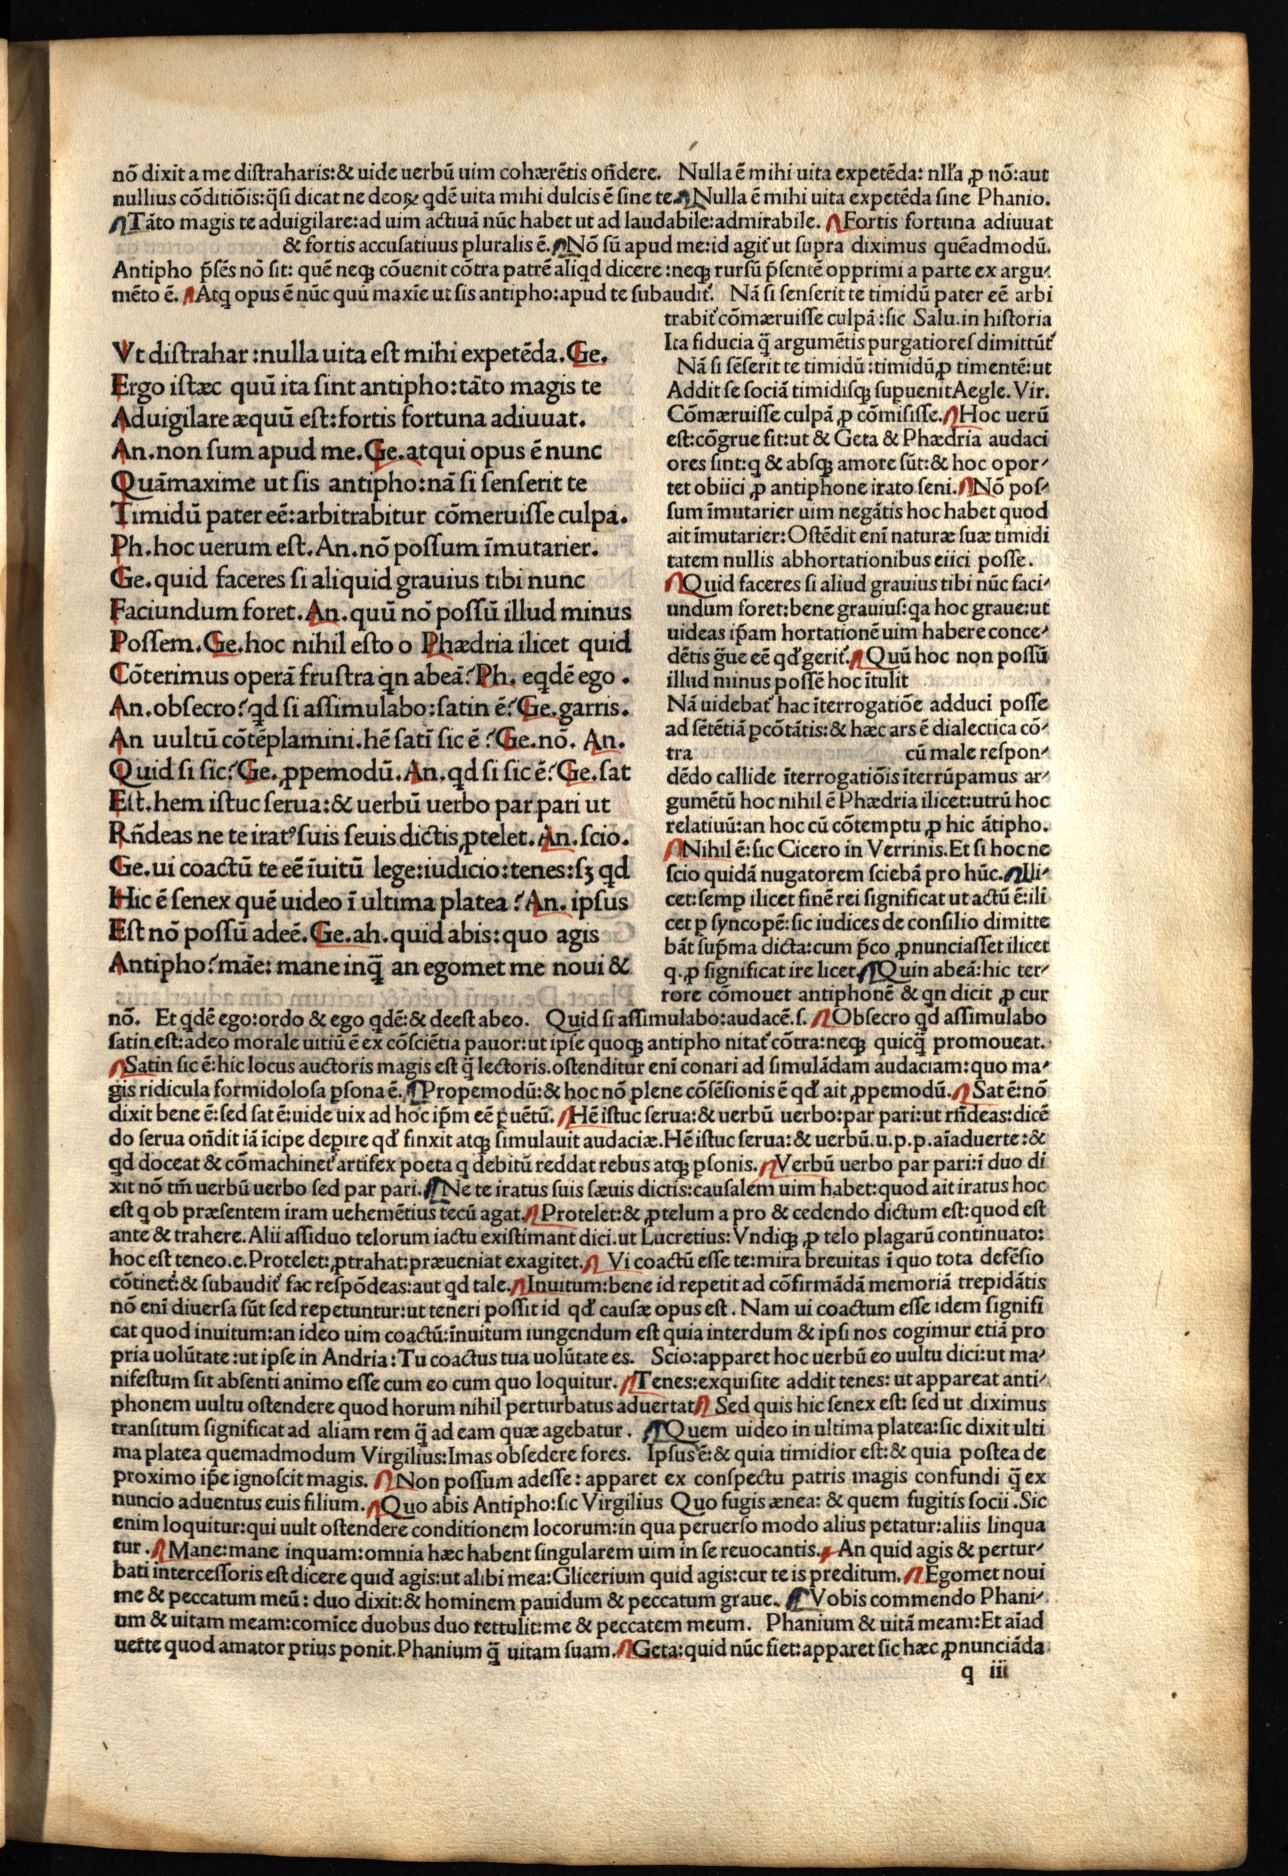 nō dixit a me distraharis:& uide uerbū uim cohærētis oñdere. Nulla ē mihi uita expetēda: nĪla ꝓ nō:aut
nullius cōditiōis:q̄si dicat ne deoꝝ qdē uita mihi dulcis ē sine te. Nulla ē mihi uita expetēda sine Phanio.
Tāto magis te aduigilare:ad uim actiuā nūc habet ut ad laudabile:admirabile. Fortis fortuna adiuuat
& fortis accusatiuus pluralis ē. Nō sū apud me:id agit᷑ ut supra diximus quēadmodū.
Antipho p̄sēs nō sit: quē neqꝫ cōuenit cōtra patrē aliqd dicere :neqꝫ rursū p̄sentē opprimi a parte ex argu-
mēto ē. Atq̨ opus ē nūc quū maxīe ut sis antipho:apud te subaudit᷑. Nā si senserit te timidū pater eē arbi
trabit᷑ cōmæruisse culpā:sic Salu.in historia
Ita fiducia q̄ argumētis purgatiores dimittūt᷑
Nā si sēserit te timidū:timidū,ꝓ timentē:ut
Addit se sociā timidisqꝫ suꝑuenit Aegle. Vir.
Cōmæruisse culpā ꝓ cōmisisse. Hoc uerū
est:cōgrue fit:ut & Geta & Phædria audaci
ores sint:q & absqꝫ amore sūt:& hoc opor-
tet obiici ꝓ antiphone irato seni. Nō pos-
sum īmutarier uim negātis hoc habet quod
ait īmutarier:Ostēdit enī naturæ suæ timidi
tatem nullis abhortationibus eiici posse.
Quid faceres si aliud grauius tibi nūc faci-
undum foret:bene grauius:qa hoc graue:ut
uideas ip̄am hortationē uim habere conce-
dētis ḡue eē qd᷑ gerit᷑. Quū hoc non possū
illud minus possē hoc ītulit
Nā uidebat᷑ hac īterrogatiōe adduci posse
ad sētētiā ꝑcōtātis:& hæc ars ē dialectica cō-
tra cū male respon-
dēdo callide īterrogatiōis īterrūpamus ar-
gumētū hoc nihil ē Phædria ilicet:utrū hoc
relatiuū:an hoc cū cōtemptu,ꝓ hic ātipho.
Nihil ē:sic Cicero in Verrinis.Et si hoc ne
scio quidā nugatorem sciebā pro hūc. Ili-
cet:semꝑ ilicet finē rei significat ut actū ē:ili
cet ꝑ syncopē:sic iudices de consilio dimitte
bāt sup̄ma dicta:cum p̄co ꝓnunciasset ilicet
q.ꝓ significat ire licet. Quin abeā:hic ter-
rore cōmouet antiphonē & qn dicit ꝓ cur
Vt distrahar :nulla uita est mihi expetēda.Ge.
Ergo istæc quū ita sint antipho:tāto magis te
Aduigilare æquū est:fortis fortuna adiuuat.
An.non sum apud me.Ge.atqui opus ē nunc
Quāmaxime ut sis antipho:nā si senserit te
Timidū pater eē:arbitrabitur cōmeruisse culpā.
Ph.hoc uerum est.An.nō possum īmutarier.
Ge.quid faceres si aliquid grauius tibi nunc
Faciundum foret.An.quū nō possū illud minus
Possem.Ge.hoc nihil esto o Phædria ilicet quid
Cōterimus operā frustra qn abeā?Ph. eqdē ego.
An.obsecro?qd si assimulabo:satin ē?Ge.garris.
An uultū cōtēplamini.hē satī sic ē?Ge.nō. An.
Quid si sic?Ge.ꝓpemodū.An.qd si sic ē?Ge.sat
Est.hem istuc serua:& uerbū uerbo par pari ut
Rñdeas ne te iratꝰ suis seuis dictis ꝓtelet.An.scio.
Ge.ui coactū te eē īuitū lege:iudicio:tenes:sꝫ qd
Hic ē senex quē uideo ī ultima platea?An.ipsus
Est nō possū adeē.Ge.ah.quid abis:quo agis
Antipho?māe: mane inq̄ an egomet me noui &
nō. Et qdē ego:ordo & ego qdē:& deest abeo. Quid si assimulabo:audacē.s. Obsecro qd assimulabo
satin est:adeo morale uitiū ē ex cōsciētia pauor:ut ipse quoqꝫ antipho nitat᷑ cōtra:neqꝫ quicq̄ promoueat.
Satin sic ē:hic locus auctoris magis est q̄ lectoris.ostenditur enī conari ad simulādam audaciam:quo ma-
gis ridicula formidolosa ꝑsona ē. Propemodū:& hoc nō plene cōsēsionis ē qd᷑ ait ꝓpemodū. Sat ē:nō
dixit bene ē:sed sat ē:uide uix ad hoc ip̄m eē ꝑuētū. Hē istuc serua:& uerbū uerbo:par pari:ut rñdeas:dicē
do serua oñdit iā īcipe deꝑire qd᷑ finxit atqꝫ simulauit audaciæ.Hē istuc serua:& uerbū.u.p.p.aīaduerte:&
qd doceat & cōmachinet᷑ artifex poeta q debitū reddat rebus atqꝫ ꝑsonis. Verbū uerbo par pari:ī duo di
xit nō tm̄ uerbū uerbo sed par pari. Ne te iratus suis sæuis dictis:causalem uim habet:quod ait iratus hoc
est q ob præsentem iram uehemētius tecū agat. Protelet:& ꝓtelum a pro & cedendo dictum est:quod est
ante & trahere.Alii assiduo telorum iactu existimant dici.ut Lucretius:Vndiqꝫ ꝓ telo plagarū continuato:
hoc est teneo.e.Protelet:ꝓtrahat:præueniat exagitet. Vi coactū esse te:mira breuitas ī quo tota defēsio
cōtinet᷑:& subaudit᷑ fac respōdeas:aut qd tale. Inuitum:bene id repetit ad cōfirmādā memoriā trepidātis
nō enī diuersa sūt sed repetuntur:ut teneri possit id qd᷑ causæ opus est. Nam ui coactum esse idem signifi
cat quod inuitum:an ideo uim coactū:īnuitum iungendum est quia interdum & ipsi nos cogimur etiā pro
pria uolūtate:ut ipse in Andria:Tu coactus tua uolūtate es. Scio:apparet hoc uerbū eo uultu dici:ut ma-
nifestum sit absenti animo esse cum eo cum quo loquitur. Tenes:exquisite addit tenes: ut appareat anti-
phonem uultu ostendere quod horum nihil perturbatus aduertat Sed quis hic senex est: sed ut diximus
transitum significat ad aliam rem q̄ ad eam quæ agebatur. Quem uideo in ultima platea:sic dixit ulti
ma platea quemadmodum Virgilius:Imas obsedere fores. Ipsus ē:& quia timidior est:& quia postea de
proximo ip̄e ignoscit magis. Non possum adesse: apparet ex conspectu patris magis confundi q̄ ex
nuncio aduentus euis filium. Quo abis Antipho:sic Virgilius Quo fugis ænea: & quem fugitis socii.Sic
enim loquitur:qui uult ostendere conditionem locorum:in qua peruerso modo alius petatur:aliis linqua
tur. Mane:mane inquam:omnia hæc habent singularem uim in se reuocantis. An quid agis & pertur-
bati intercessoris est dicere quid agis:ut alibi mea:Glicerium quid agis:cur te is preditum. Egomet noui
me & peccatum meū: duo dixit:& hominem pauidum & peccatum graue. Vobis commendo Phani-
um & uitam meam:comīce duobus duo rettulit:me & peccatem meum. Phanium & uitā meam:Et aīad
uerte quod amator prius ponit.Phanium q̄ uitam suam. Geta:quid nūc fiet:apparet sic hæc ꝓnunciāda
q iii